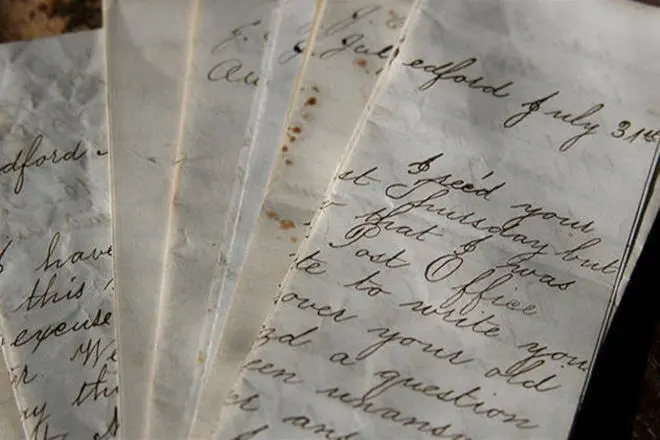 dford
I have
this
excuse
We
J. Jul
Au
edford July 31st
I rec'd your
st Thursday but
that I was
Post Office
te to write you
over your old
a question
een unans
and